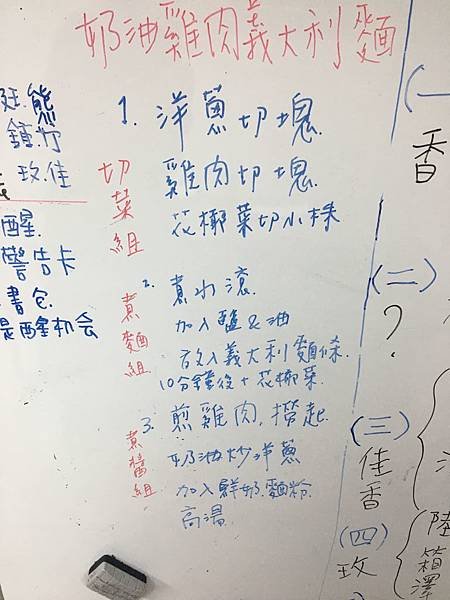 奶油雞肉義大利麵
廷.熊
鎮.竹
玫.佳
醒.
警告卡
書包.
是醒机会
切菜組
1. 洋蔥切塊.
雞肉切塊.
花椰菜切小株
煮麵組
2. 煮水滾.
加入鹽&油
放入義大利麵條.
10分鐘後+花椰菜.
煮醬組
3. 煎雞肉,撈起.
奶油炒洋蔥
加入鮮奶.麵粉.
高湯.
(一
香
(二)
?
(三)
佳
香
(四)
玫
陸
箱
澤